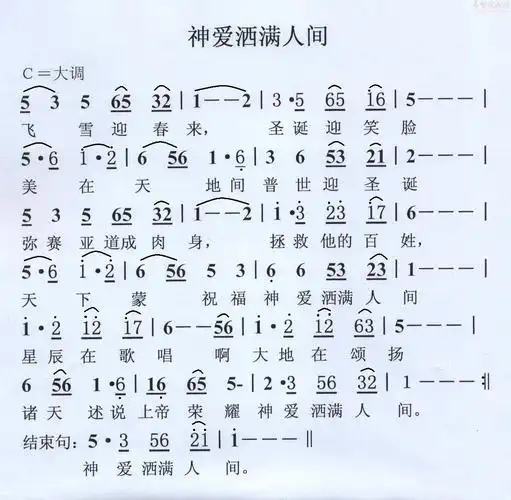 神爱洒满人间
C＝大调
5 3 5 65 32 | 1——2 | 3·5 65 16 | 5——— |
飞 雪迎春来， 圣诞迎笑脸
5·6 1·2 | 6 56 1·6 | 3 6 53 21 | 2——— |
美 在 天 地间普世迎圣诞
5 3 5 65 32 | 1——2 | 1·3 23 17 | 6——— |
弥赛亚道成肉身， 拯救他的百姓，
5·6 1·2 | 6 56 5 3 | 6 6 53 23 | 1——— |
天 下 蒙 祝福神爱洒满人间
1·2 12 17 | 6——56 | 1·2 12 63 | 5——— |
星辰在歌唱 啊大地在颂扬
6 56 1·6 | 16 65 5- | 2·3 56 32 | 1——— :||
诸天述说上帝荣耀神爱洒满人间。
结束句：5·3 56 21 | 1——— ||
神爱洒满人间。